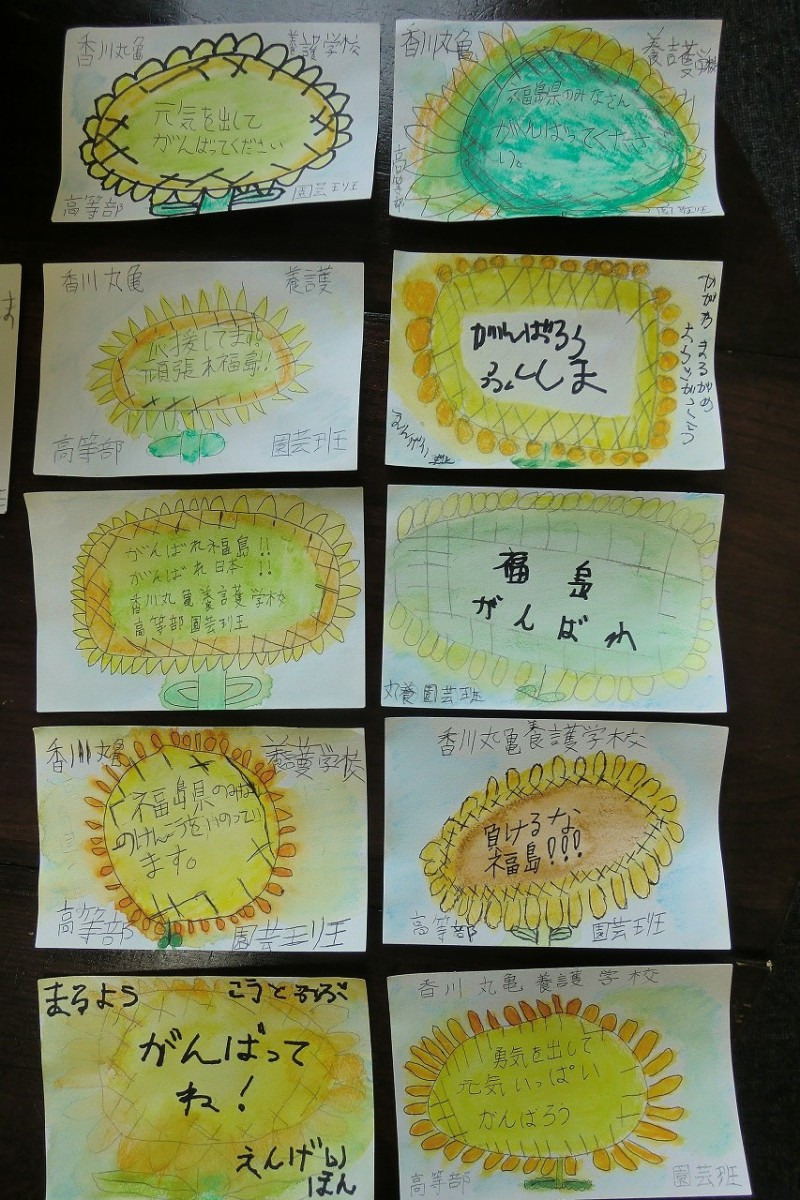 香川丸亀 養護学校
元気を出して
がんばってください
高等部 園芸班
香川丸亀 養護学校
福島県のみなさん
がんばってくださ
い。
高等部
園芸班
香川丸亀 養護
応援してます。
頑張れ福島!!
高等部 園芸班
がんばろう
ふくしま
かがわ まるがめ
ようごがっこう
がんばれ福島!!
がんばれ日本!!
香川丸亀養護学校
高等部園芸班
福島
がんばれ
丸養園芸班
香川丸亀 養護学校
福島県のみな
ます。
高等部 園芸班
香川丸亀養護学校
負けるな
福島!!!
高等部 園芸班
まるよう こうとうぶ
がんばって
ね!
えんげい
はん
香川丸亀養護学校
勇気を出して
元気いっぱい
がんばろう
高等部 園芸班